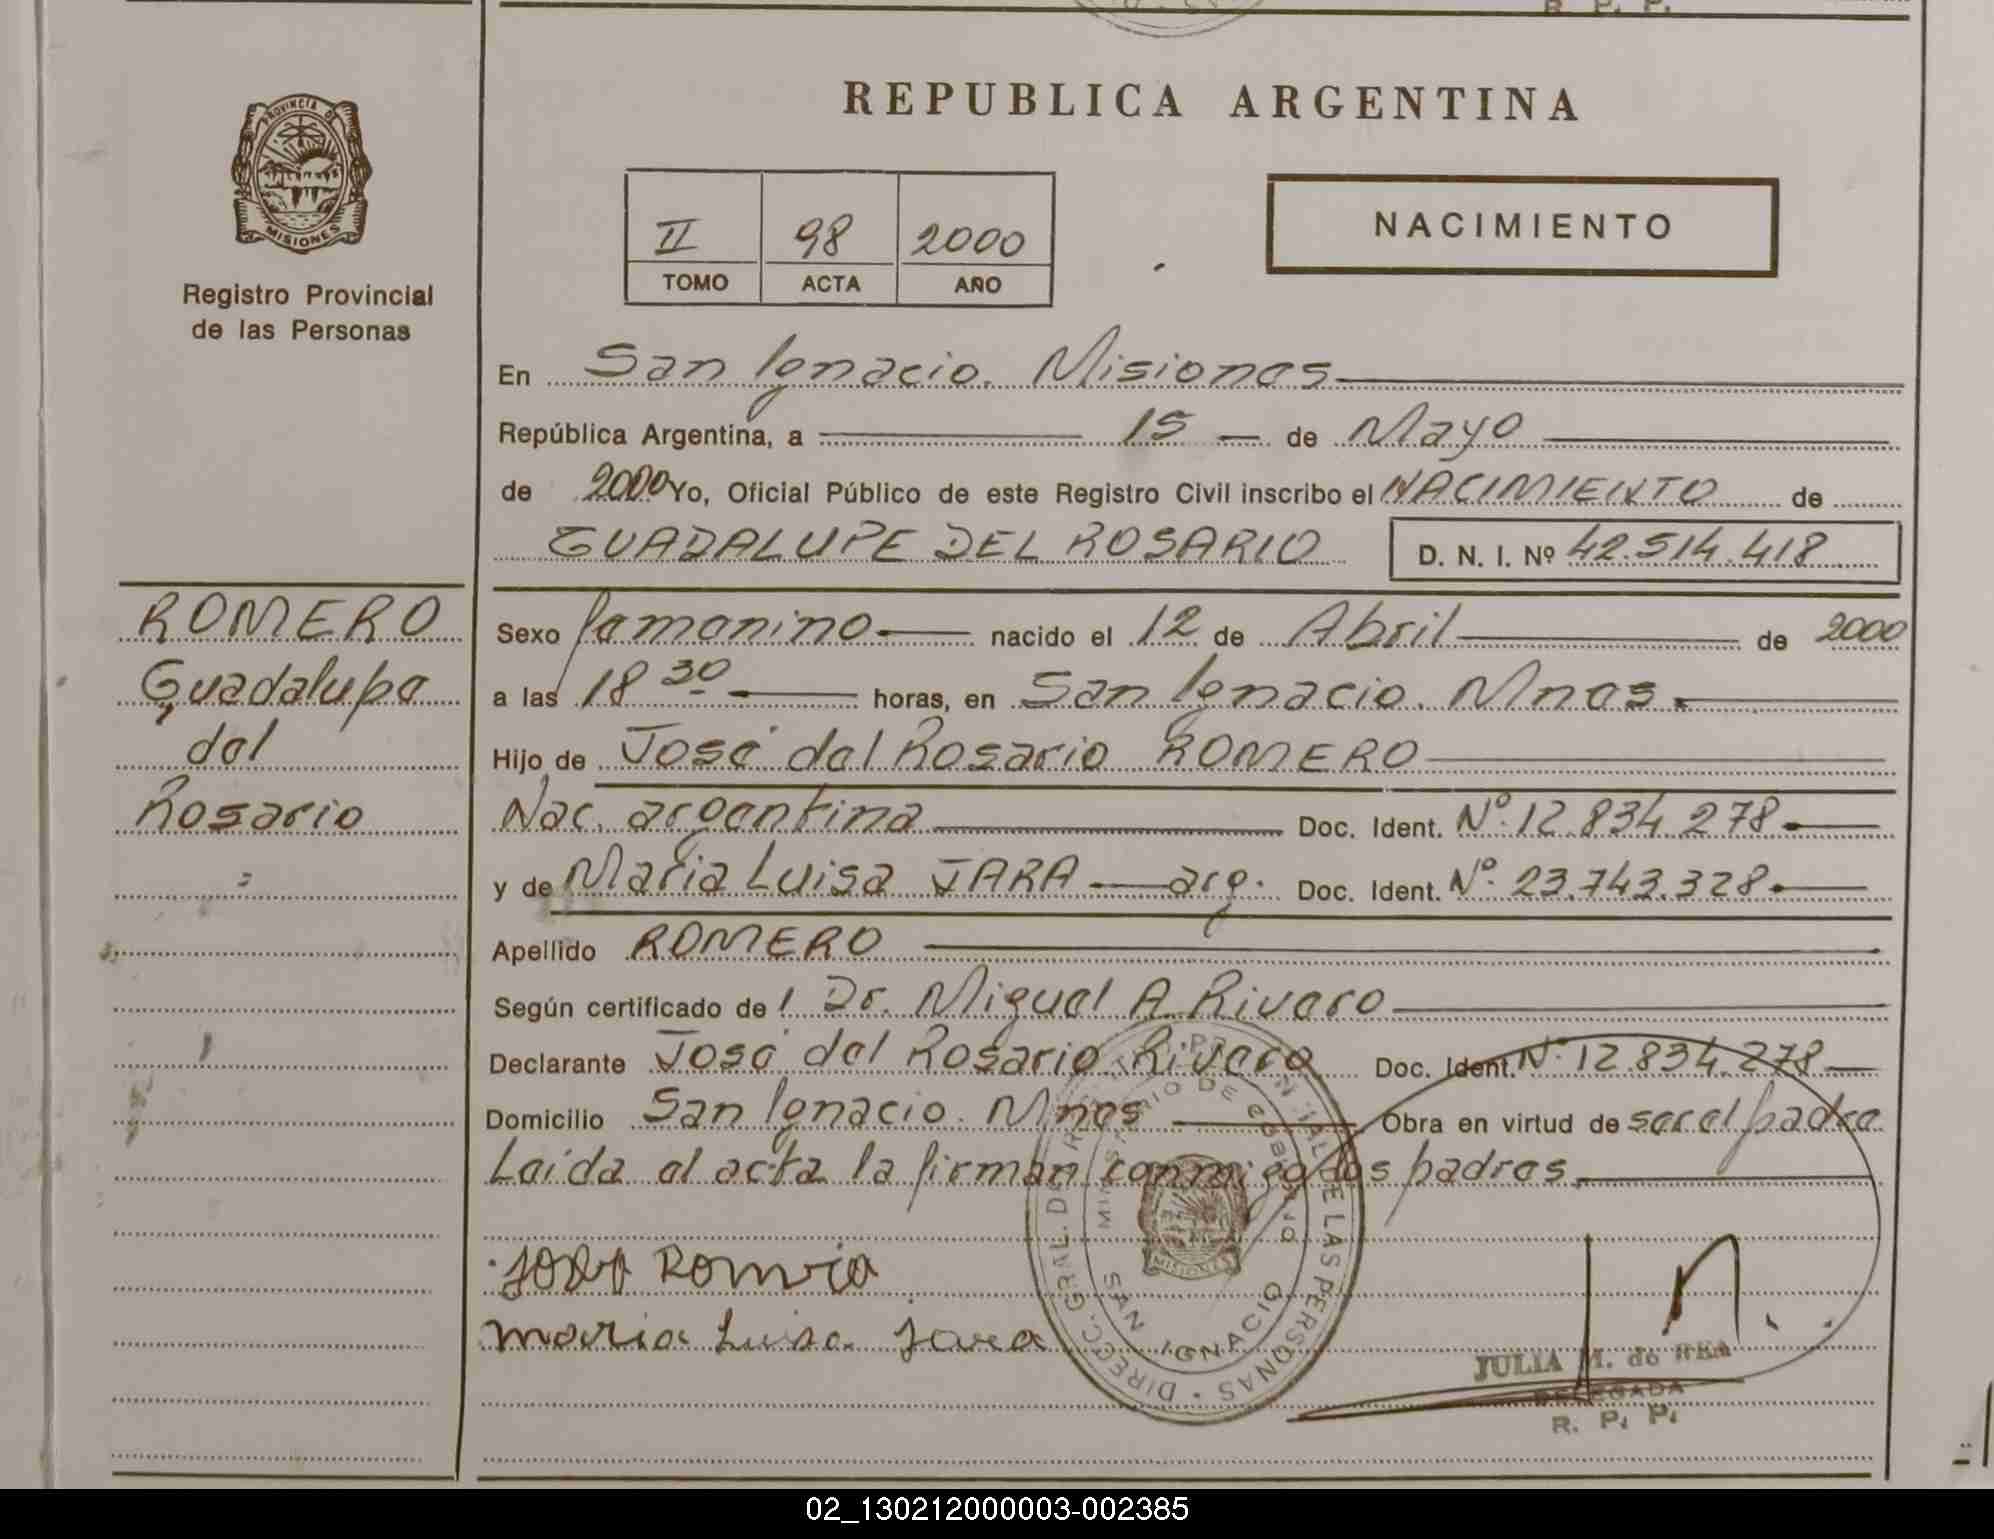 R. P. P.
PROVINCIA DE
MISIONES
Registro Provincial
de las Personas
REPUBLICA ARGENTINA
II 98 2000
TOMO ACTA AÑO
NACIMIENTO
En San Ignacio. Misiones
República Argentina, a 15 de Mayo
de 2000 Yo, Oficial Público de este Registro Civil inscribo el NACIMIENTO de
GUADALUPE DEL ROSARIO D. N. I. Nº 42.514.418
ROMERO
Guadalupe
del
Rosario
Sexo femenino nacido el 12 de Abril de 2000
a las 18 30 horas, en San Ignacio. Mnes.
Hijo de José del Rosario ROMERO
Nac. argentina Doc. Ident. Nº 12.834.278
y de Maria Luisa JARA arg. Doc. Ident. Nº 23.743.328
Apellido ROMERO
Según certificado de l Dr. Miguel A Rivero
Declarante José del Rosario Rivero Doc. Ident. Nº 12.834.278
Domicilio San Ignacio. Mnes Obra en virtud de ser el padre
Leida el acta la firman conmigo los padres.
Romero
maria Luisa Jara
DIRECC. GRAL. DEL REG. PROVINCIAL DE LAS PERSONAS
MINISTERIO DE GOBIERNO
MISIONES
SAN IGNACIO
JULIA M. de
DELEGADA
R. P. P.
02_130212000003-002385